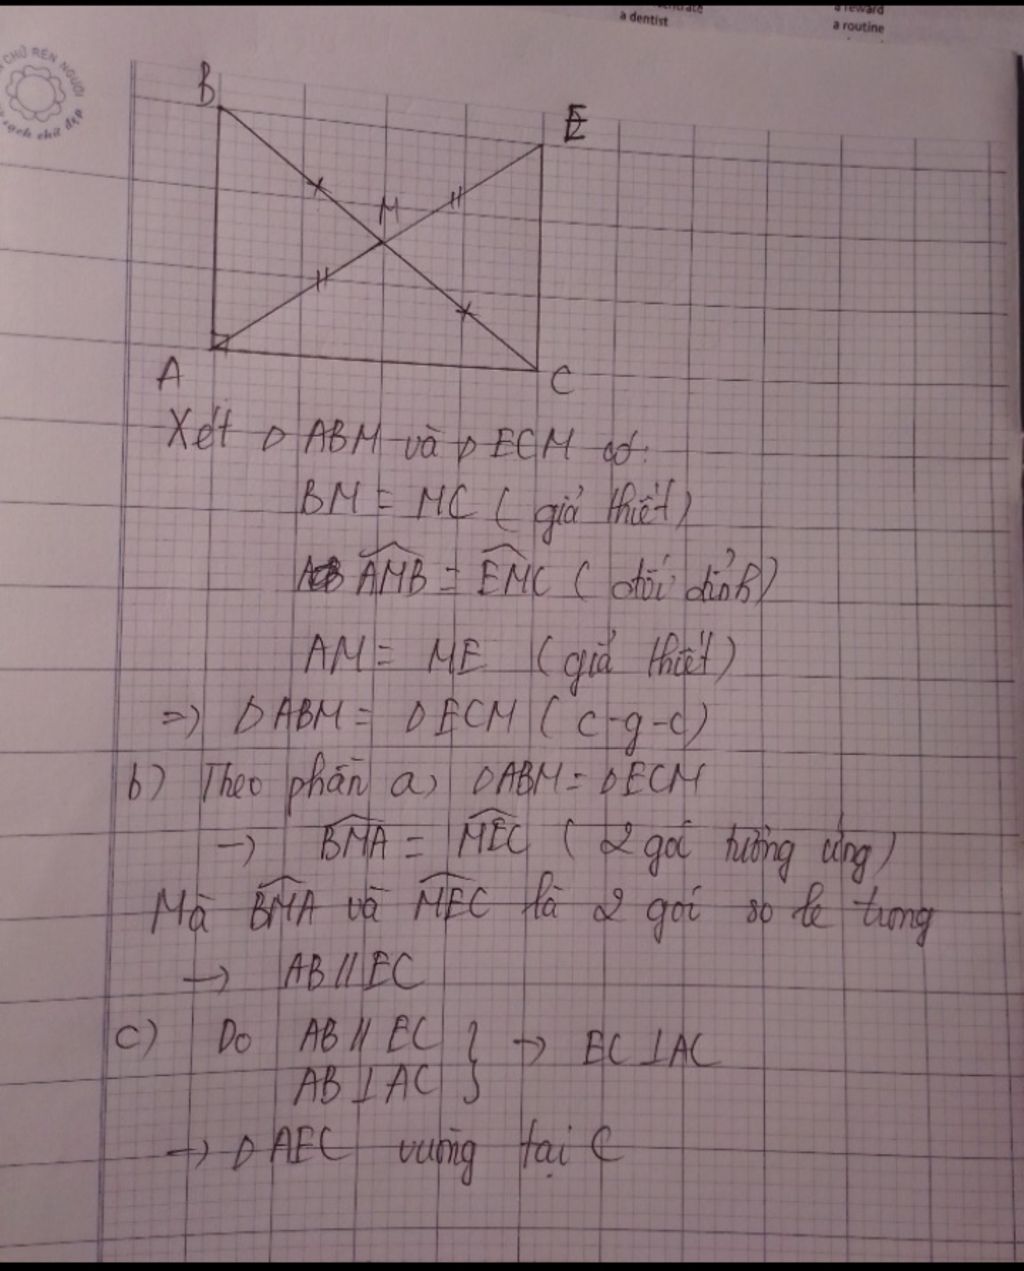 a dentist
a reward
a routine
CHỮ RÈN NGƯỜI
sạch chữ đẹp
B
E
M
A
C
Xét Δ ABM và Δ ECM có:
BM = MC (giả thiết)
AMB = EMC (đối đỉnh)
AM = ME (giả thiết)
=> Δ ABM = Δ ECM (c-g-c)
b) Theo phần a) Δ ABM = Δ ECM
→ BMA = MEC (2 góc tương ứng)
Mà BMA và MEC là 2 góc so le trong
→ AB // EC
c) Do AB // EC } → EC ⊥ AC
AB ⊥ AC
→ Δ AEC vuông tại C